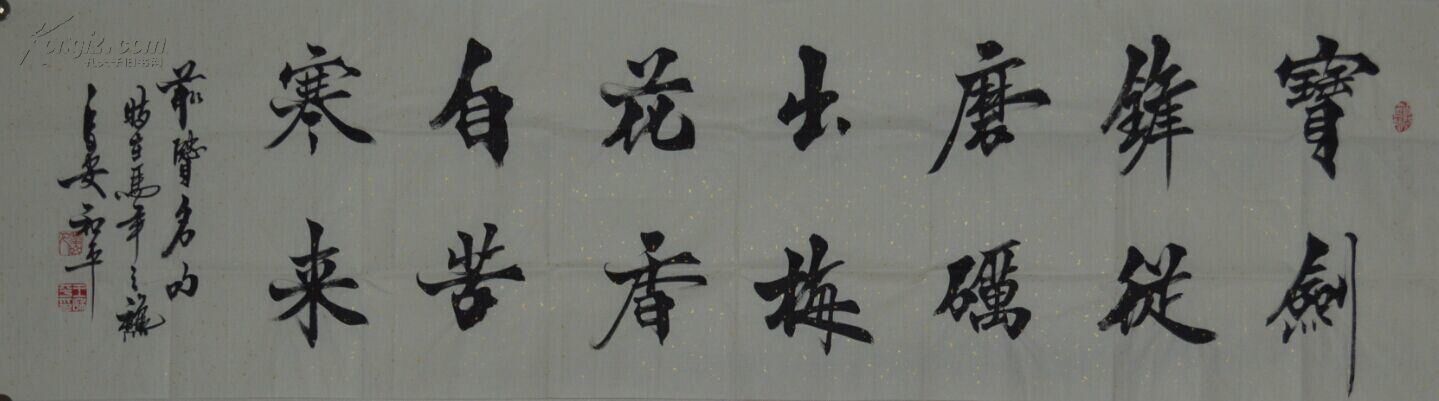 寶劍
鋒從
磨礪
出梅
花香
自苦
寒来
前賢名句
時在馬年之穐
長安和平
Kongfz.com
孔夫子旧书网